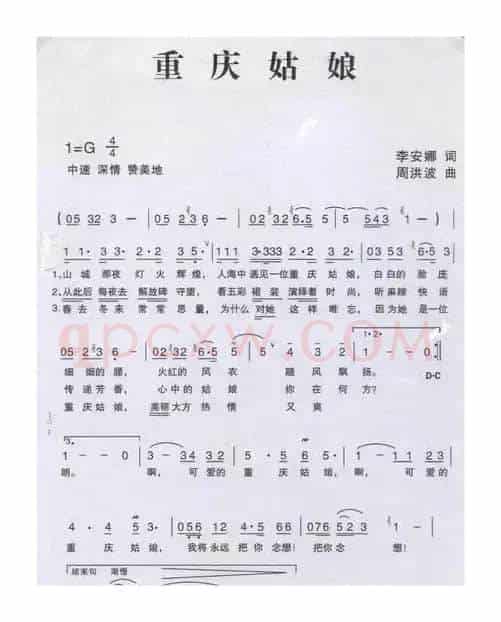 重庆姑娘
1=G 4/4
中速 深情 赞美地
李安娜 词
周洪波 曲
(05 32 3 - | 05 2 3 6 - | 02 32 6·5 5 | 5 543 | 1 - ) |
1 1· 3 3· 3 5 | 111 3·333 2 2· | 03 51 6·5 3
1.山城那夜 灯火 辉煌, 人海中 遇见一位重庆 姑娘, 白白的 脸庞
2.从此后 每夜去 解放碑 守望, 看五彩 裙装 演绎着 时尚, 听麻辣 快语
3.春去 冬来 常常 思量, 为什么 对她 这样 难忘, 因为她 是一位
05 2 3 6 - | 02 32 6·5 5 | 5 543 | 1 - 1 0 :|
1·2·
D·C
细细的 腰, 火红的 风衣 随风飘 扬。
传递芳 香, 心中的 姑娘 你在何 方?
重庆姑 娘, 美丽大方 热情 又爽
3
1 - - 0 | 3 - 34 32 | 5· 5 6 5 - | 6 - 45 43
朗。 啊, 可爱的 重庆姑娘, 啊, 可爱的
4· 4 5 - | 056 12 4·5 6 | 076 52 3 | 1 -
重庆姑娘, 我将永远 把你 念想! 把你念 想!
结束句 渐慢
qpcxw.com